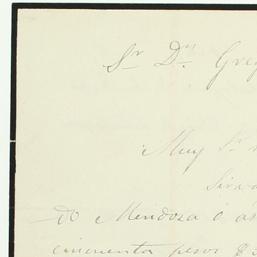 Sr. Dn. Greg
Muy Sr. 
Sirva
do Mendoza ó
cincuenta pesos